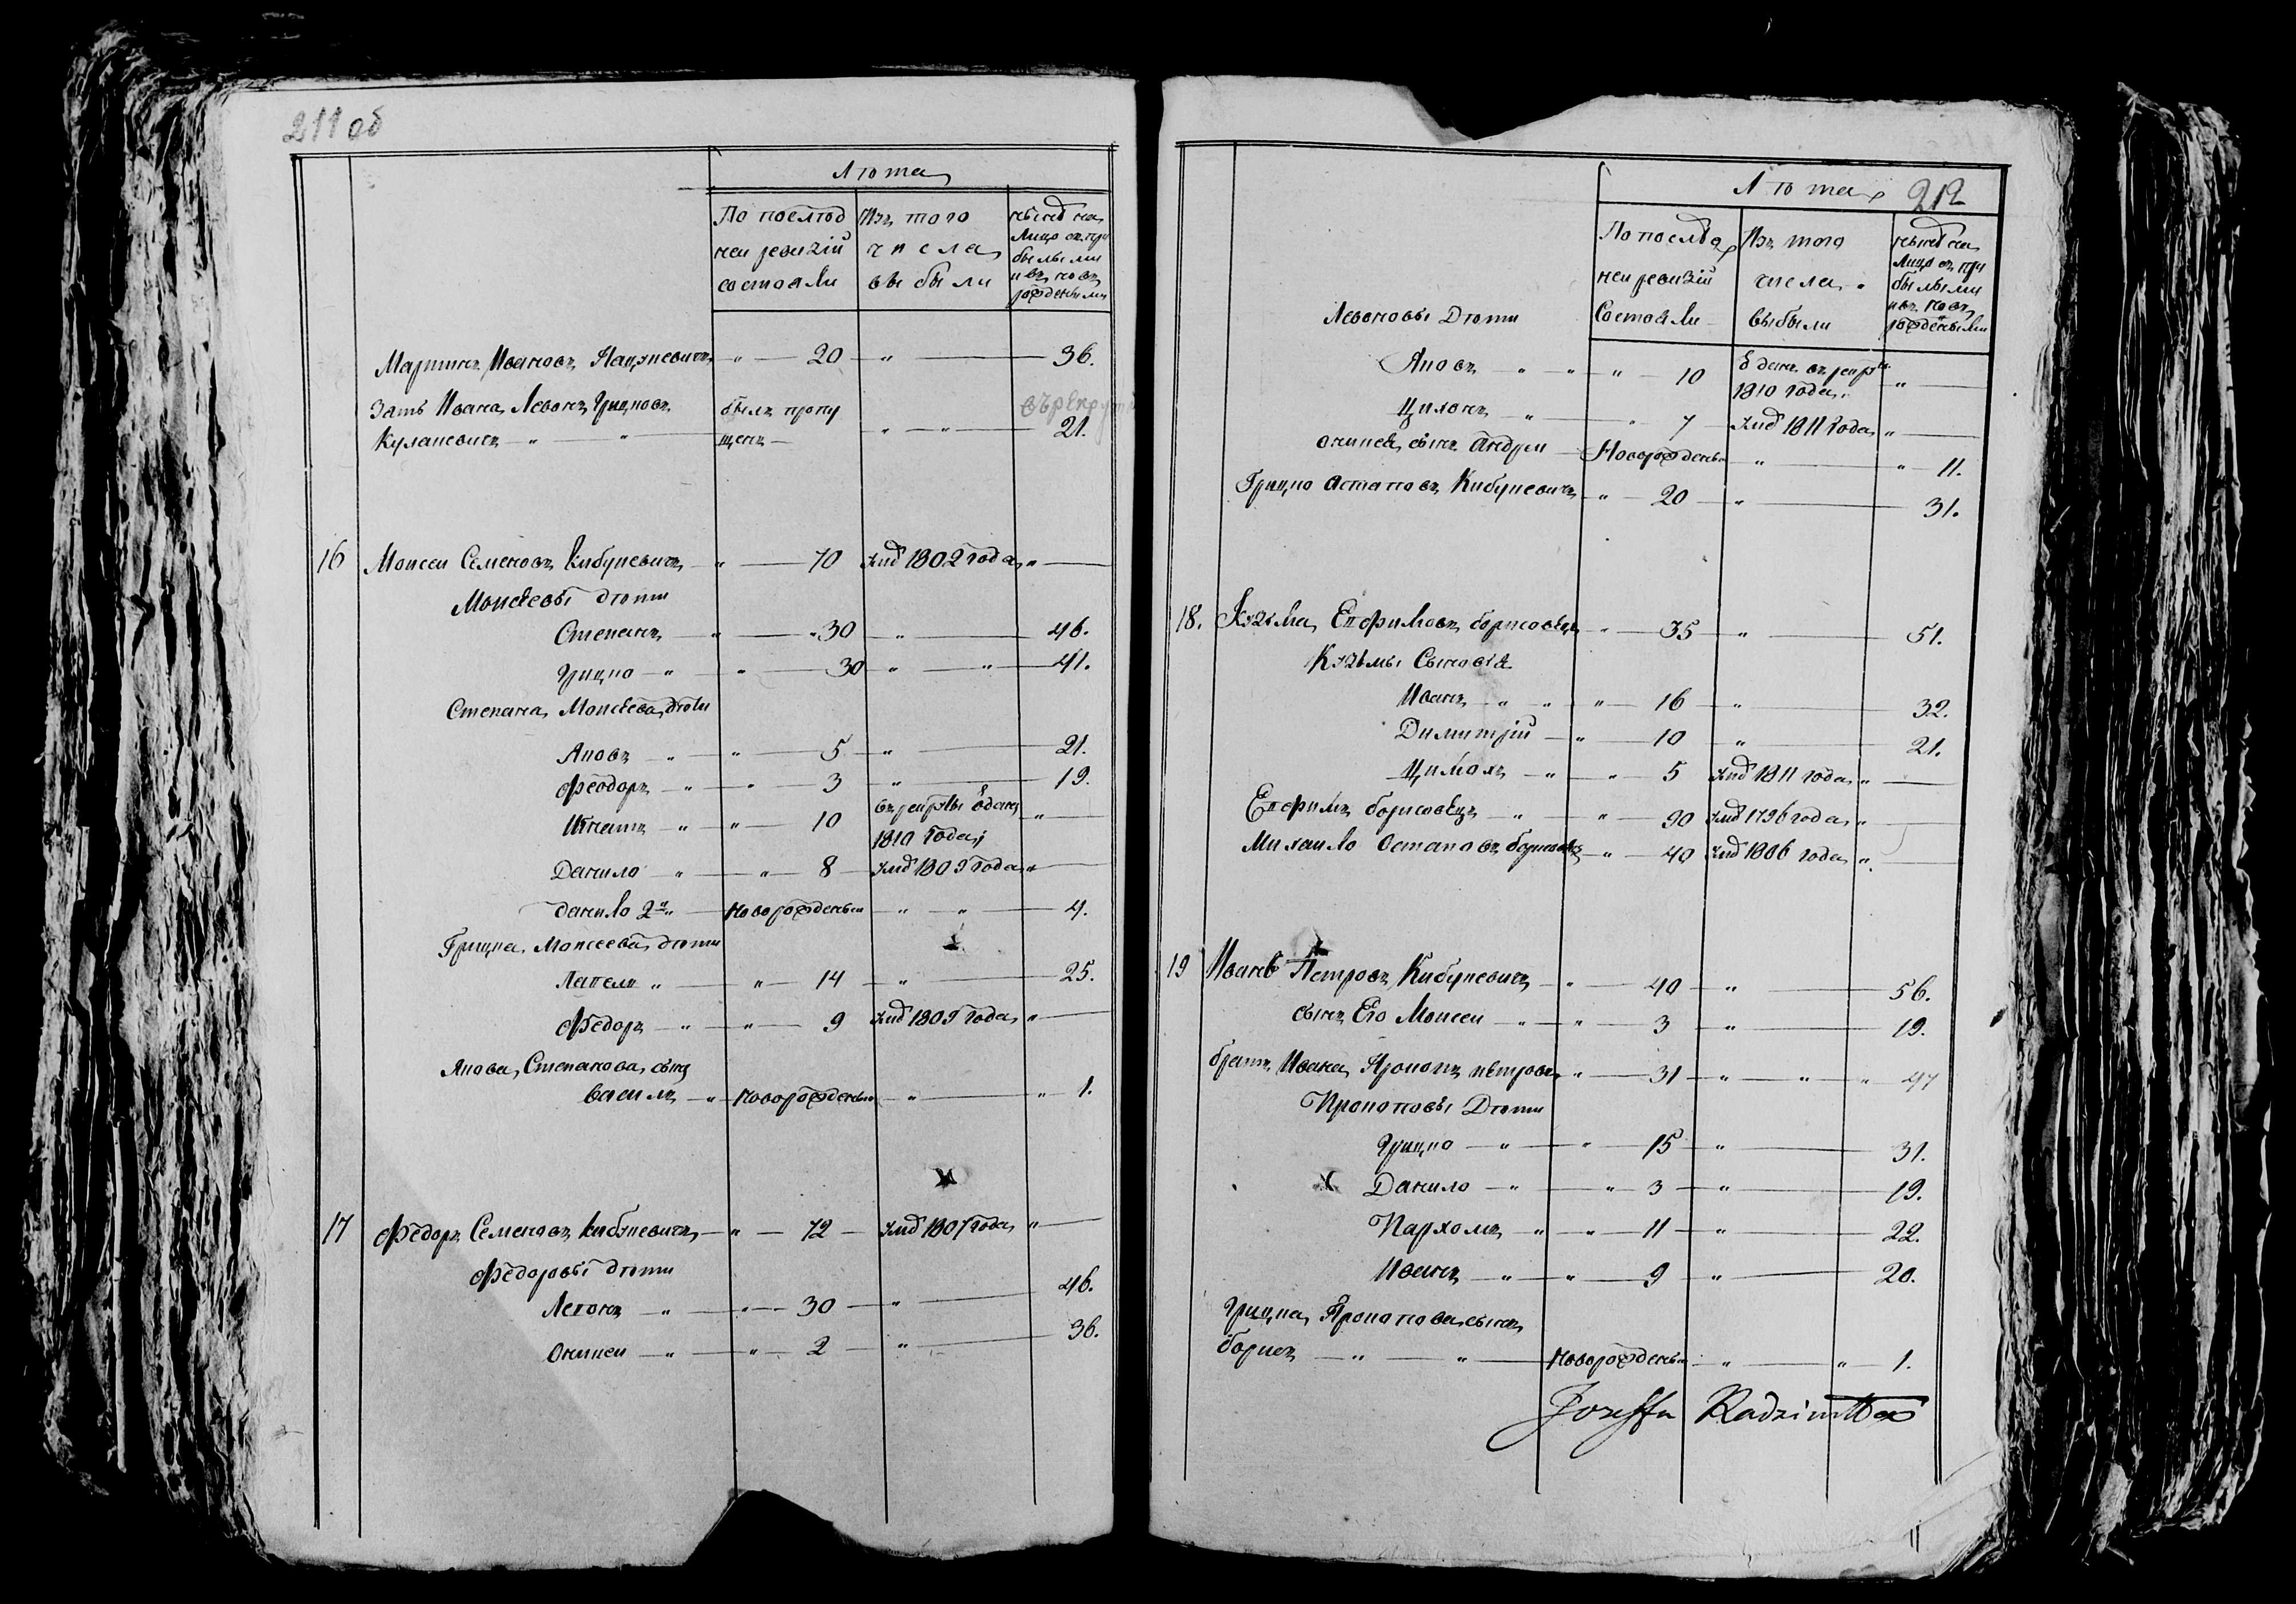 211 об
Лѣта
По послѣд ней ревизіи состояли
Изъ того числа выбыли
нынѣ на лицо съ прибылыми и въ новь рожденными
Мартинъ Ивановъ " 20 " 36.
Зять Ивана Левонъ Грицковъ
Кулакевичъ " " былъ пропущенъ " " 21.
16 Моисеи Семеновъ Кибукевичъ " 70 умѣ 1802 года "
Моисѣевы дѣти
Степанъ " 30 " 46.
Грицко " " 30 " " 41.
Степана Моисѣева дѣти
Яковъ " " 5 " 21.
Феодоръ " " 3 " 19.
Игнатъ " " 10 въ рекруты Ѿданъ 1810 года "
Данило " " 8 умѣ 1809 года "
Данило 2й " новорожденыи " " 4.
Грицка Моисеева дѣти
" " 14 " 25.
Федоръ " " 9 умѣ 1809 года "
Якова Степанова сынъ
Василь " новорожденыи " " 1.
17 Федоръ Семеновъ Кибукевичъ " 72 умѣ 1807 года "
Федоровы дѣти
Левонъ " " 30 " 46.
Оникеи " " 2 " 36.
212
Лѣта
По послѣд ней ревизіи состояли
Изъ того числа выбыли
нынѣ на лицо съ прибылыми и въ новь рожденными
Левоновы Дѣти
Яковъ " " " 10 Ѿданъ въ рекруты 1810 года "
Цихонъ " " 7 умѣ 1811 года "
Оникея сынъ Андреи Новорожденыи " " 11.
Грицко Астаповъ Кибукевичъ " 20 " 31.
18. Кузьма Ефимовъ Борисовецъ " 35 " 51.
Кузьмы Сыновья
Иванъ " " " 16 " 32.
Димитріи " 10 " 21.
Цимохъ " " 5 умѣ 1811 года "
Ефимъ Борисовецъ " " 90 умѣ 1796 года "
Михаило Остаповъ Борисовецъ " 40 умѣ 1806 года "
19 Иванъ Петровъ Кибукевичъ " 40 " 56.
сынъ Его Моисеи " " 3 " 19.
братъ Ивана Прокопъ Петровъ " 31 " " " 47
Прокоповы Дѣти
Грицко " " 15 " 31.
Данило " " 3 " 19.
Пархомъ " " 11 " 22.
Иванъ " " 9 " 20.
Грицка Прокопова сынъ
Борисъ " " новорожденыи " " 1.